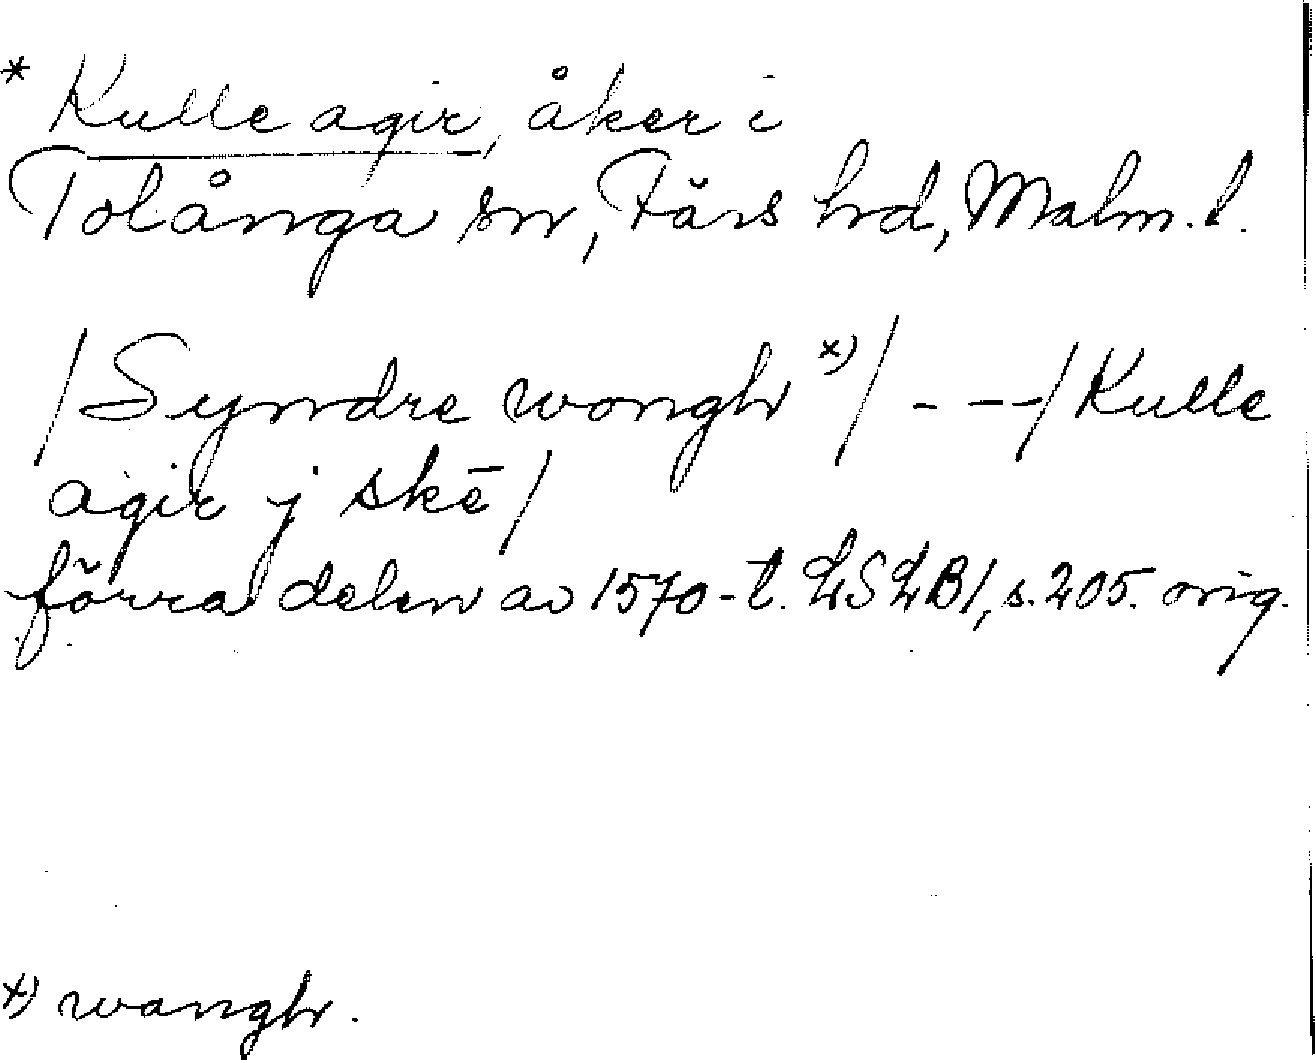 * Kulle agir, åker i
Tolånga sn, Färs hd, Malm. l.
/Syndre wongh x)/ - - -/Kulle
agir j skē/
förra delen av 1570-t. LSLB1, s. 205. orig.
x) wangh.